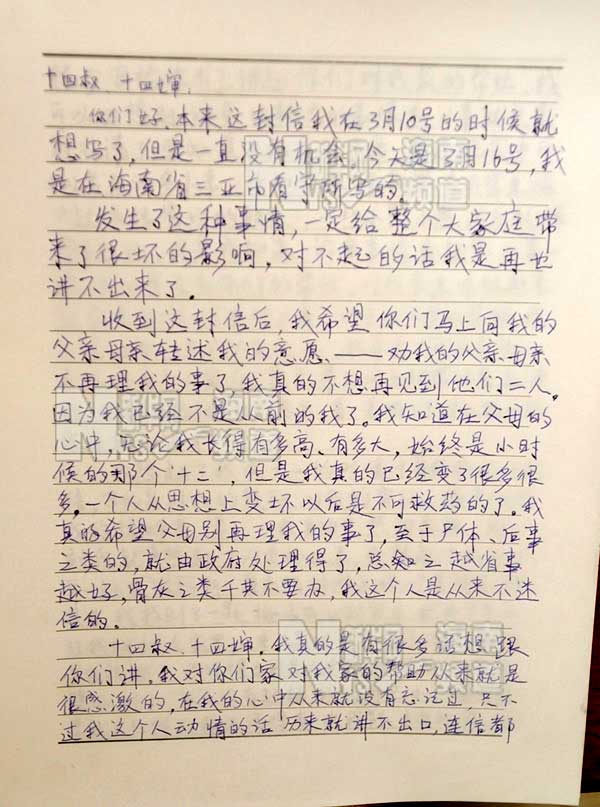 十四叔、十四婶,
你们好,本来这封信我在3月10号的时候就
想写了,但是一直没有机会,今天是3月16号,我
是在海南省三亚市看守所写的。
发生了这种事情,一定给整个大家庭带
来了很坏的影响,对不起的话我是再也
讲不出来了。
收到这封信后,我希望你们马上向我的
父亲母亲转述我的意愿、——劝我的父亲母亲
不再理我的事了,我真的不想再见到他们二人。
因为我已经不是从前的我了。我知道在父母的
心中,无论我长得有多高、有多大,始终是小时
候的那个“十二”,但是我真的已经变了很多很
多。一个人从思想上变坏以后是不可救药的了。我
真的希望父母别再理我的事了,至于尸体、后事
之类的,就由政府处理得了,总知之越省事
越好,骨灰之类千其不要办,我这个人是从来不迷
信的。
十四叔、十四婶,我真的是有很多话想跟
你们讲,我对你们家对我家的帮助从来就是
很感激的,在我的心中从来就没有忘记过,只不
过我这个人动情的话历来就讲不出口,连信都